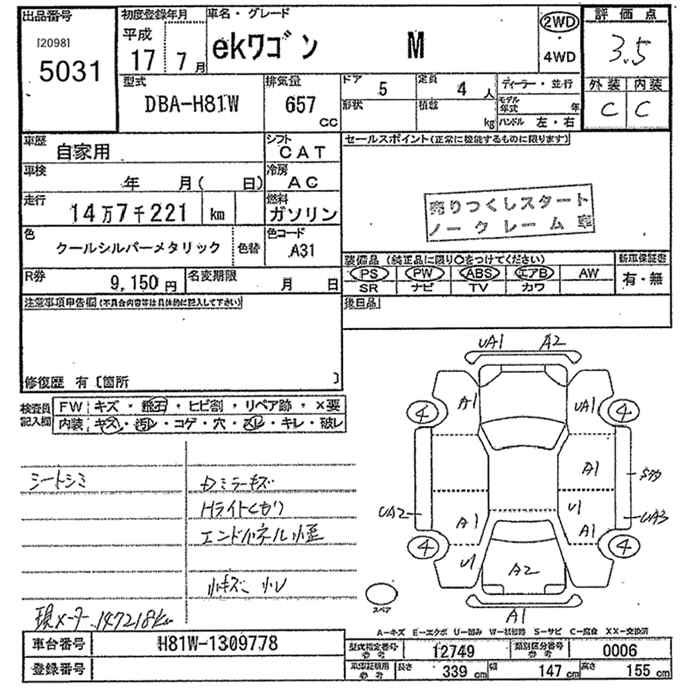 出品番号
[2098]
5031
初度登録年月
平成
17 年 7 月
車名・グレード
ekワゴン M
2WD
4WD
評価点
3.5
外装 内装
C C
型式
DBA-H81W
排気量
657 cc
ドア 5
形状
定員 4 人
積載 kg
ディーラー・並行
モデル年式 年
ハンドル 左・右
車歴
自家用
シフト
CAT
車検
年 月( 日)
冷房
AC
走行
14万7千221 km
燃料
ガソリン
色
クールシルバーメタリック
色替
色コード
A31
R券
9,150円
名変期限
月 日
セールスポイント(正常に機能するものに限ります)
売りつくしスタート
ノークレーム車
装備品(純正品に限り○をつけてください)
PS PW ABS エアB AW
SR ナビ TV カワ
新車保証書
有・無
後日品
注意事項申告欄(不具合内容等は具体的に記入して下さい)
修復歴 有〔箇所 〕
検査員記入欄
FW キズ・飛石・ヒビ割・リペア跡・×要
内装 キズ・汚レ・コゲ・穴・スレ・キレ・破レ
シートシミ
Dミラーキズ
Hライトくもり
エンドパネル小歪
小キズ 小凹
現メーター 147218km
UA1 A2
A1 UA1
4 4
A1
UA2 A1 U1 A1 UA3
4 4
U1
A2
A1
スペア
A-キズ E-エクボ U-凹み W-波 S-サビ C-腐食 XX-交換済
車台番号
H81W-1309778
登録番号
型式指定番号 参考
12749
類別区分番号 参考
0006
車検証明用 参考
長さ 339 cm 幅 147 cm 高さ 155 cm